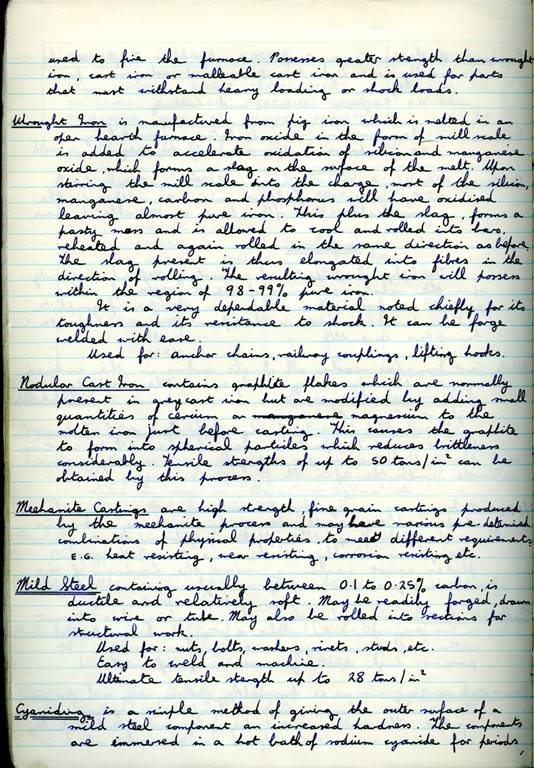 used to fire the furnace. Possesses greater strength than wrought
iron, cast iron or malleable cast iron and is used for parts
that must withstand heavy loading or shock loads.
Wrought Iron is manufactured from pig iron which is melted in an
open hearth furnace. Iron oxide in the form of mill scale
is added to accelerate oxidation of silicon and manganese
oxide, which forms a slag on the surface of the melt. Upon
stirring the mill scale into the charge, most of the silicon,
manganese, carbon and phosphorus will have oxidised
leaving almost pure iron. This plus the slag, forms a
pasty mass and is allowed to cool and rolled into bars,
reheated and again rolled in the same direction as before,
The slag present is thus elongated into fibres in the
direction of rolling. The resulting wrought iron will possess
within the region of 98-99% pure iron.
It is a very dependable material noted chiefly for its
toughness and its resistance to shock. It can be forge
welded with ease.
Used for: anchor chains, railway couplings, lifting hooks.
Nodular Cast Iron contains graphite flakes which are normally
present in grey cast iron but are modified by adding small
quantities of cerium or manganese magnesium to the
molten iron just before casting. This causes the graphite
to form into spherical particles which reduces brittleness
considerably. Tensile strengths of up to 50 tons/in² can be
obtained by this process.
Meehanite Castings are high strength, fine grain castings produced
by the meehanite process and may have various pre-determined
combinations of physical properties, to meet different requirements
E.G. heat resisting, wear resisting, corrosion resisting etc.
Mild Steel containing usually between 0.1 to 0.25% carbon, is
ductile and relatively soft. May be readily forged, drawn
into wire or tube. May also be rolled into sections for
structural work.
Used for: nuts, bolts, washers, rivets, studs, etc.
Easy to weld and machine.
Ultimate tensile stength up to 28 tons/in²
Cyaniding is a simple method of giving the outer surface of a
mild steel component an increased hardness. The components
are immersed in a hot bath of sodium cyanide for periods,